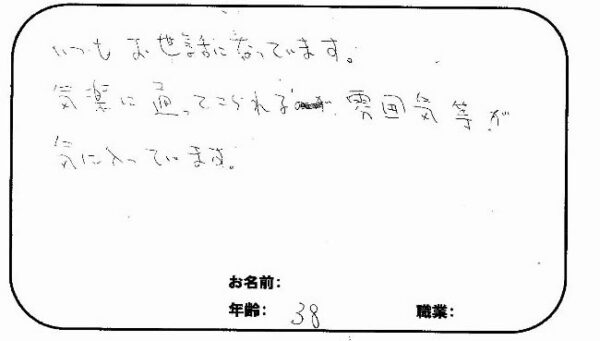 いつもお世話になっています。
気楽に通ってこられる 雰囲気等が
気に入っています。
お名前:
年齢: 38 職業: